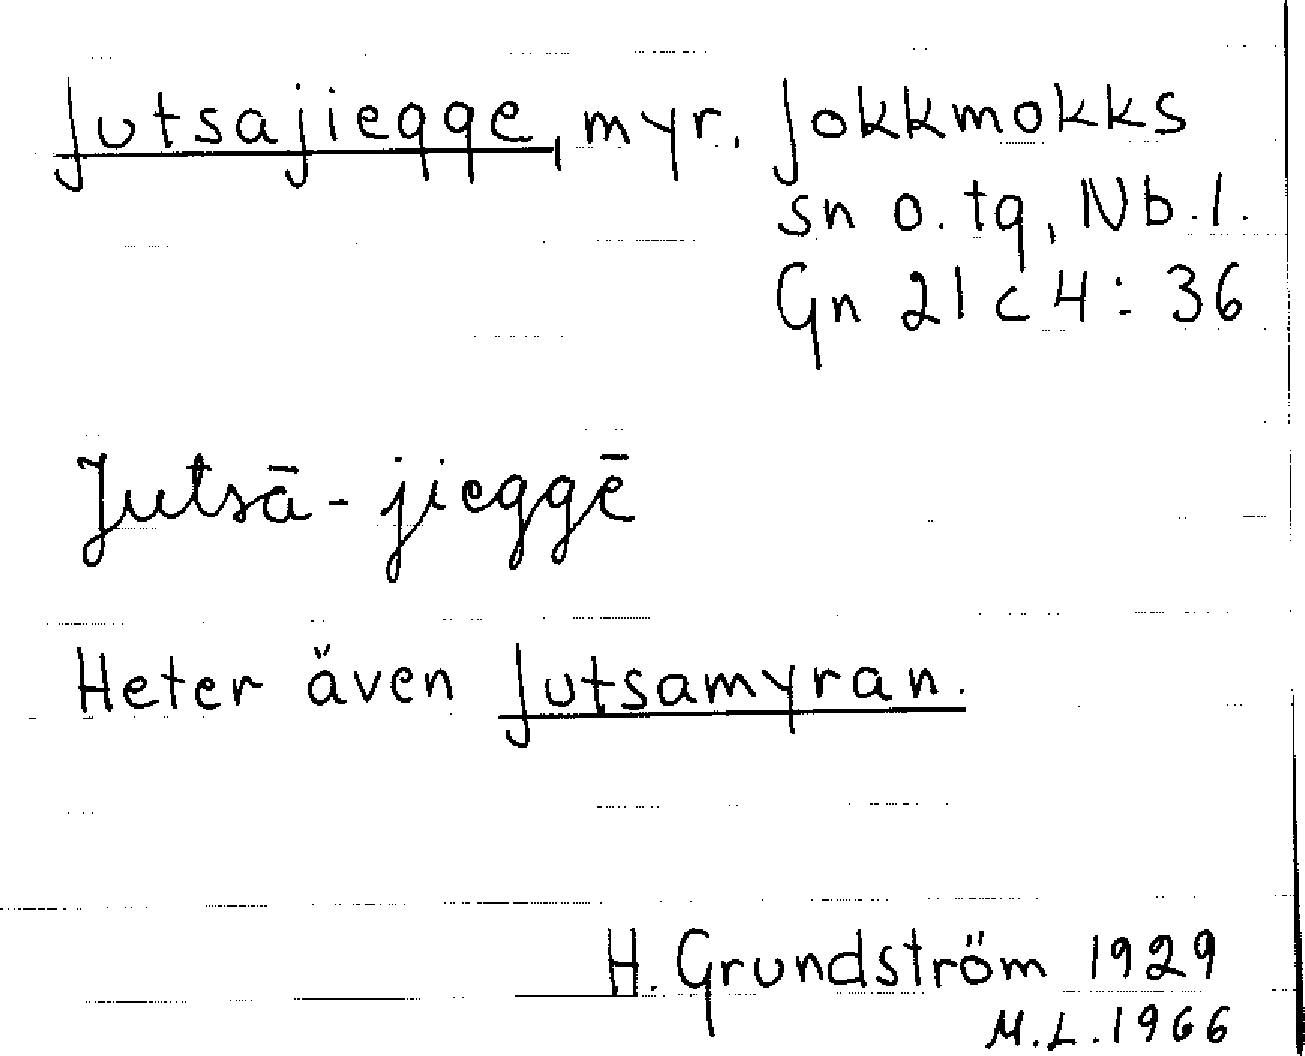 Jutsajiegge, myr. Jokkmokks
sn o. tg, Nb. l.
Gn 21 c 4 : 36
Jutsā - jieggē
Heter även Jutsamyran.
H. Grundström 1929
M.L. 1966